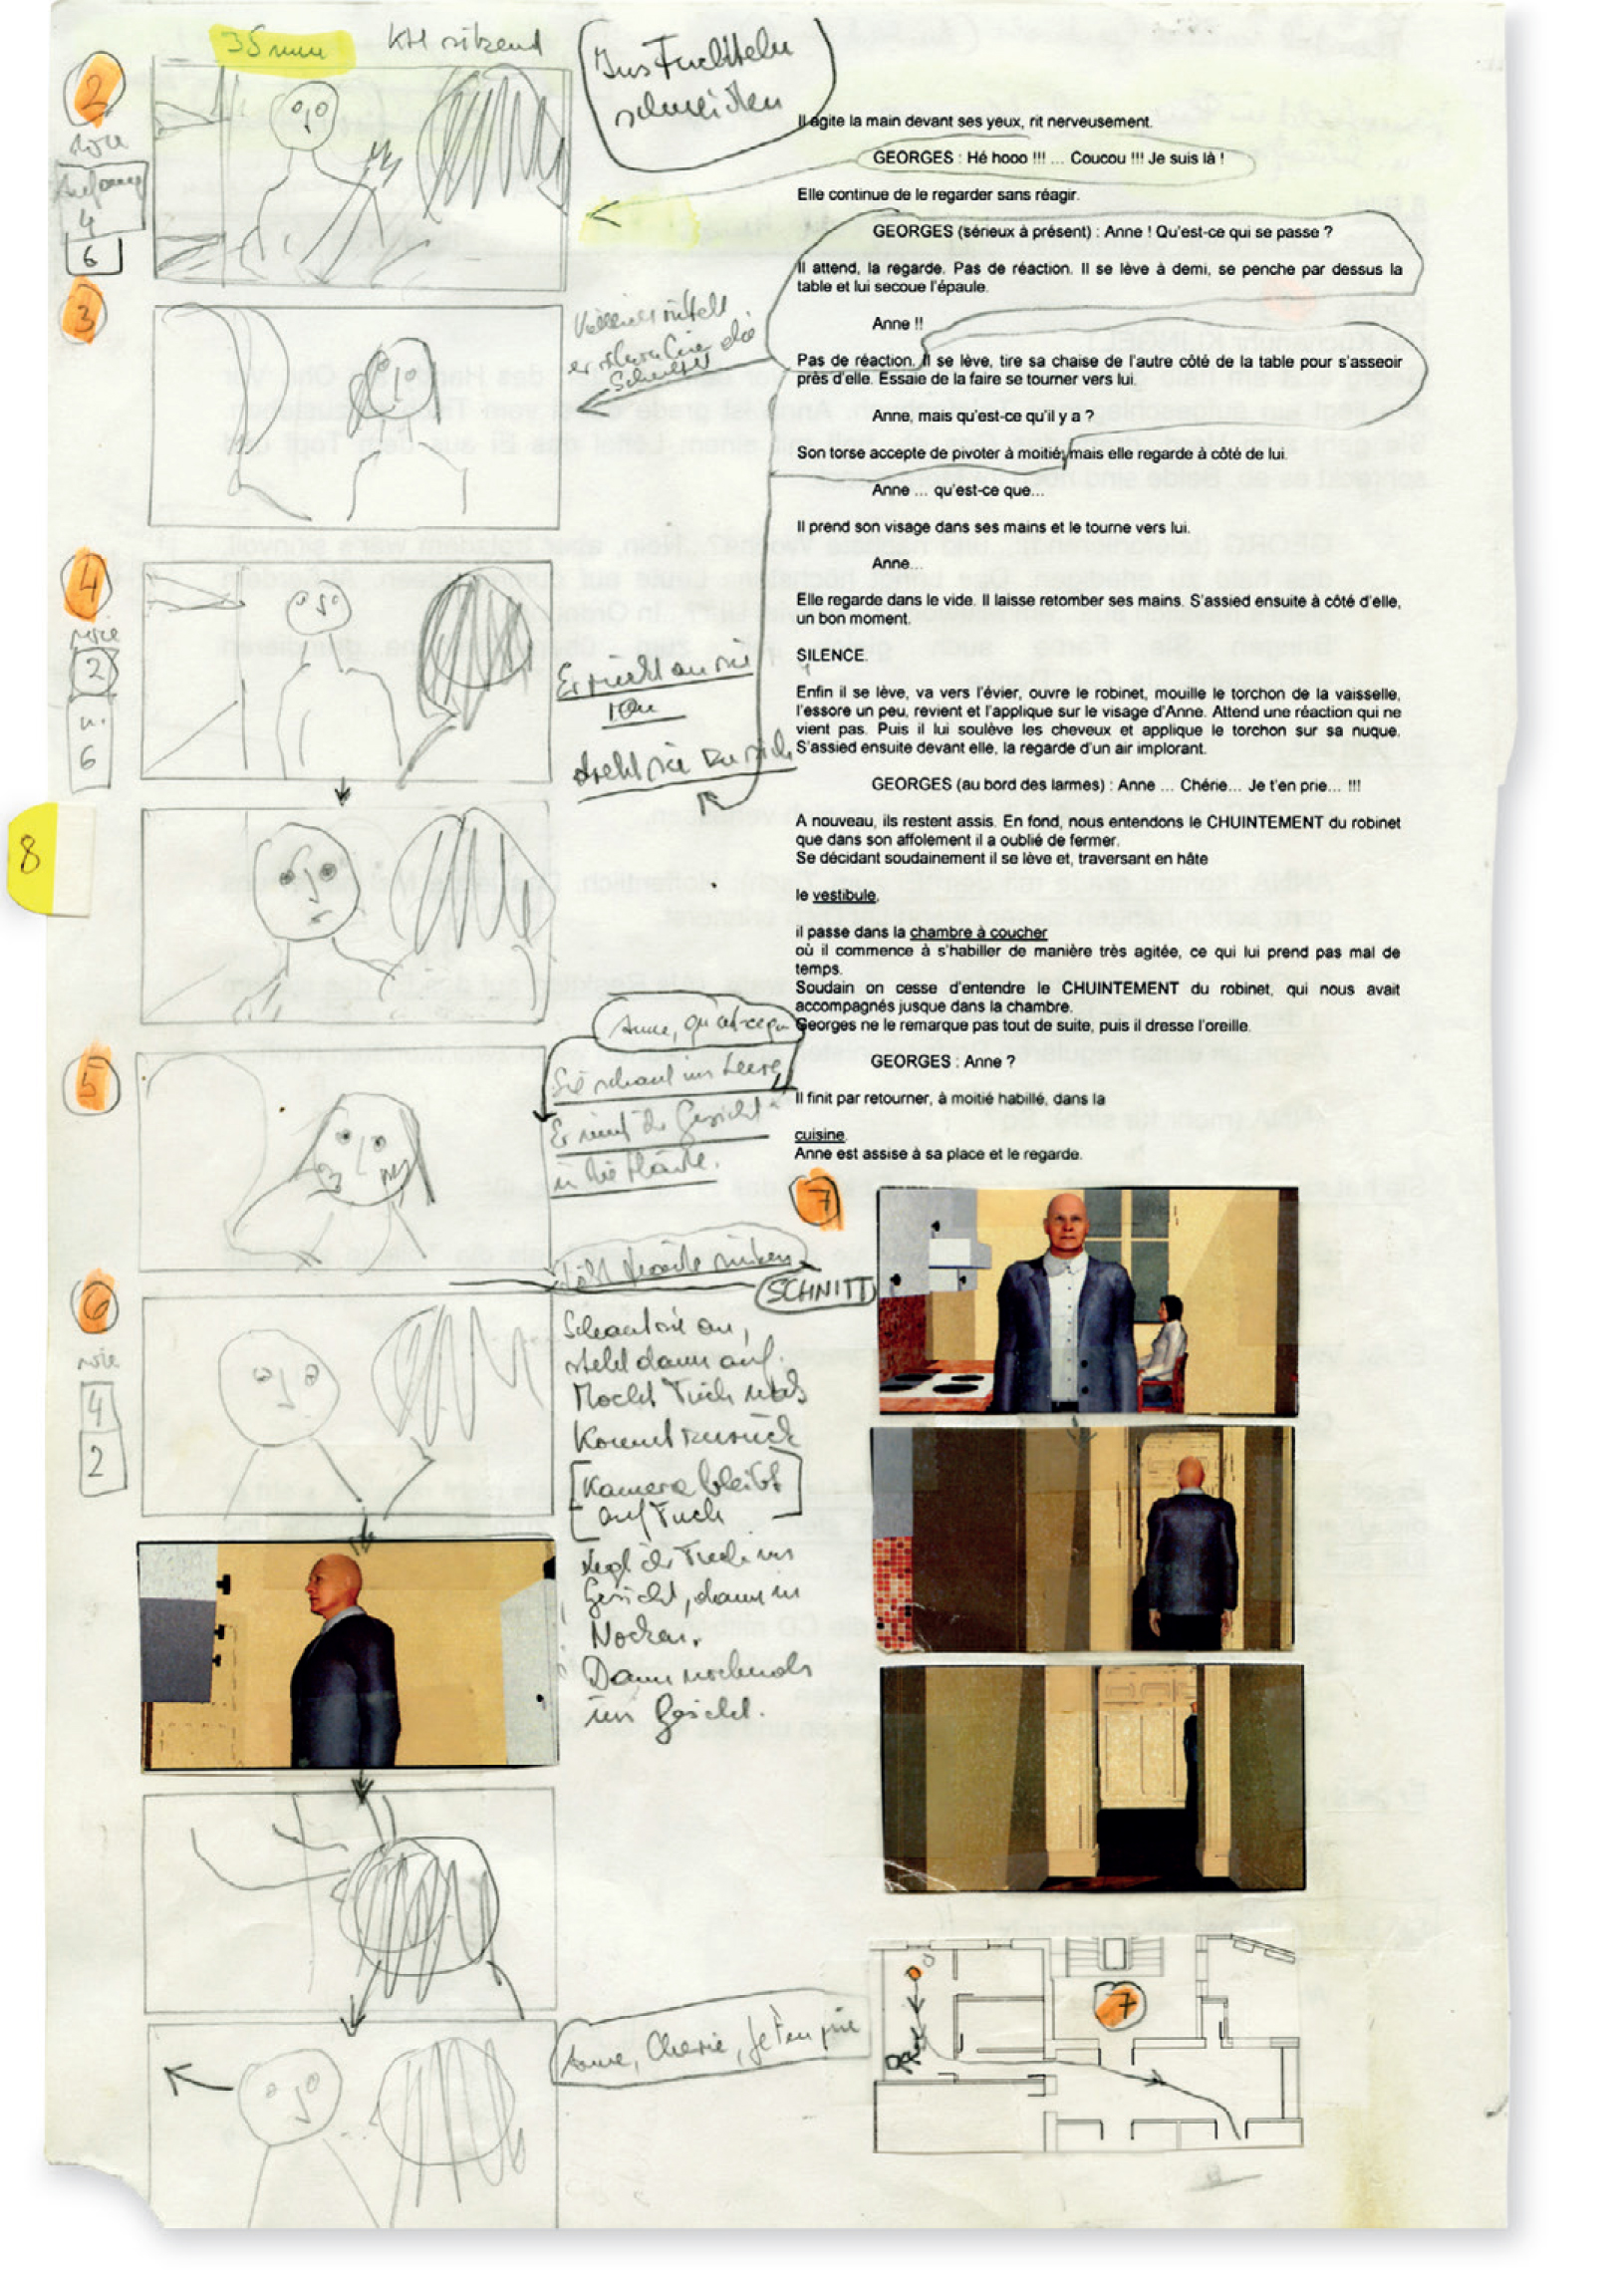 35mm KH sitzend
Ins Fuchteln
schneiden
2
wie
Anfang
4
6
3
4
wie
2
u.
6
8
5
6
wie
4
2
Vielleicht
Schulter
Er rückt an sie
ran
dreht sie zu sich
Anne, qu'est-ce que
Sie schaut ins Leere
Er nimmt ihr Gesicht
in die Hände.
SCHNITT
Schaut sie an,
steht dann auf.
Macht Tuch nass
Kommt zurück
Kamera bleibt
auf Tuch
Legt ihr Tuch ins
Gesicht, dann in
Nacken.
Dann nochmals
ins Gesicht.
Anne, Cherie, Je t'en prie
Il agite la main devant ses yeux, rit nerveusement.
GEORGES : Hé hooo !!! ... Coucou !!! Je suis là !
Elle continue de le regarder sans réagir.
GEORGES (sérieux à présent) : Anne ! Qu'est-ce qui se passe ?
Il attend, la regarde. Pas de réaction. Il se lève à demi, se penche par dessus la
table et lui secoue l'épaule.
Anne !!
Pas de réaction. Il se lève, tire sa chaise de l'autre côté de la table pour s'asseoir
près d'elle. Essaie de la faire se tourner vers lui.
Anne, mais qu'est-ce qu'il y a ?
Son torse accepte de pivoter à moitié, mais elle regarde à côté de lui.
Anne ... qu'est-ce que...
Il prend son visage dans ses mains et le tourne vers lui.
Anne...
Elle regarde dans le vide. Il laisse retomber ses mains. S'assied ensuite à côté d'elle,
un bon moment.
SILENCE.
Enfin il se lève, va vers l'évier, ouvre le robinet, mouille le torchon de la vaisselle,
l'essore un peu, revient et l'applique sur le visage d'Anne. Attend une réaction qui ne
vient pas. Puis il lui soulève les cheveux et applique le torchon sur sa nuque.
S'assied ensuite devant elle, la regarde d'un air implorant.
GEORGES (au bord des larmes) : Anne ... Chérie... Je t'en prie... !!!
A nouveau, ils restent assis. En fond, nous entendons le CHUINTEMENT du robinet
que dans son affolement il a oublié de fermer.
Se décidant soudainement il se lève et, traversant en hâte
le vestibule,
il passe dans la chambre à coucher
où il commence à s'habiller de manière très agitée, ce qui lui prend pas mal de
temps.
Soudain on cesse d'entendre le CHUINTEMENT du robinet, qui nous avait
accompagnés jusque dans la chambre.
Georges ne le remarque pas tout de suite, puis il dresse l'oreille.
GEORGES : Anne ?
Il finit par retourner, à moitié habillé, dans la
cuisine.
Anne est assise à sa place et le regarde.
7
7